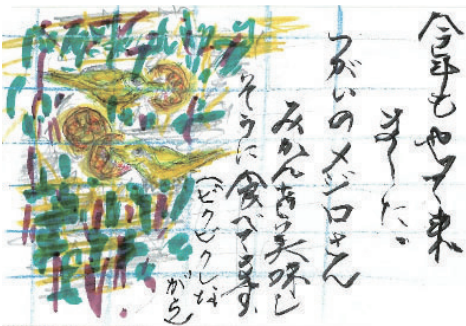 今年もやって来
ました、
つがいのメジロさん
みかんを美味し
そうに食べてます、
(ビクビクしな
がら)